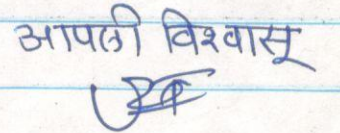 आपली विश्वासू